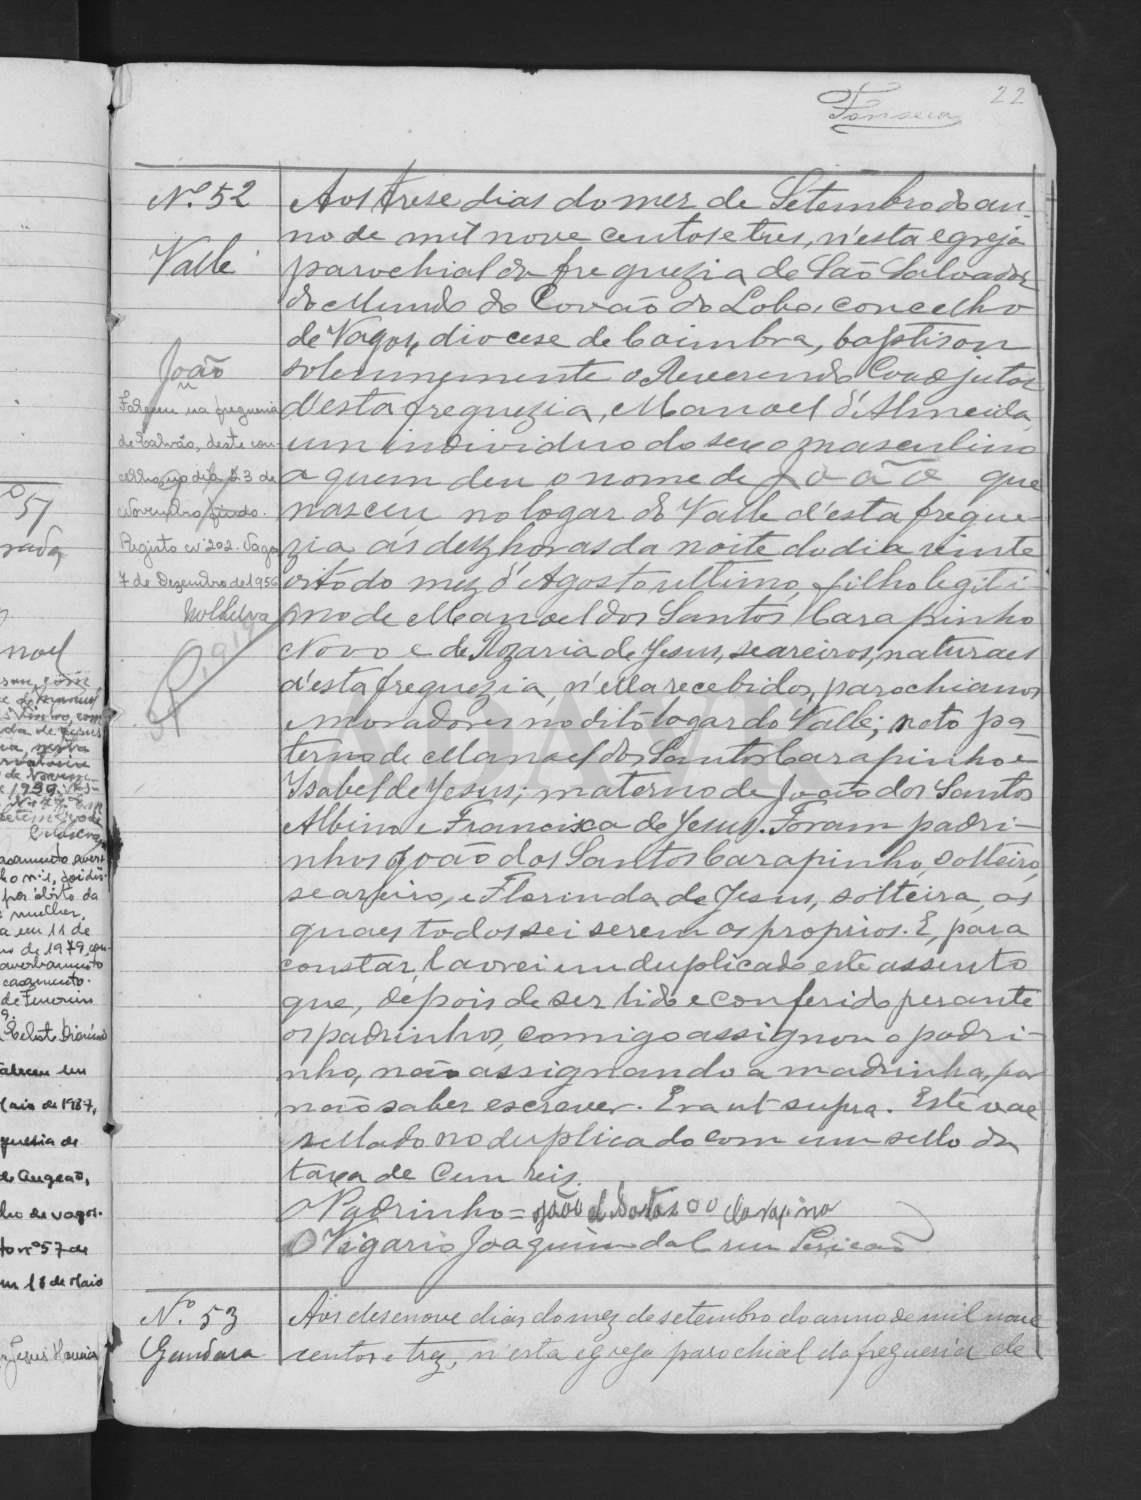 22
Fonseca
Nº 52
Valle
João
Faleceu na freguesia
de Calvão, deste con-
celho, no dia 23 de
Novembro findo.
Registo nº 202. Vagos
7 de Dezembro de 1956
Aos trese dias do mez de Setembro do an-
no de mil nove centos e tres, n'esta egreja
parochial da freguezia de São Salvador
do Mundo do Covão do Lobo, concelho
de Vagos, diocese de Coimbra, baptison
solemnemente o Reverendo Coadjutor
d'esta freguezia, Manoel d'Almeida,
um individuo do sexo masculino
a quem deu o nome de João que
nasceu no logar do Valle d'esta fregue-
zia ás dez horas da noite do dia vinte
oito do mez d'Agosto ultimo, filho legiti-
mo de Manoel dos Santos Carapinho
Novo e de Rozaria de Jesus, seareiros, naturaes
d'esta freguezia, n'ella recebidos, parochianos
e moradores no dito logar do Valle; neto pa-
terno de Manoel dos Santos Carapinho e
Isabel de Jesus; materno de João dos Santos
Albino e Francisca de Jesus. Foram padri-
nhos João dos Santos Carapinho, solteiro,
seareiro, e Florinda de Jesus, solteira, os
quaes todos sei serem os proprios. E, para
constar, lavrei em duplicado este assento
que, depois de ser lido e conferido perante
os padrinhos, comigo assignou o padri-
nho, não assignando a madrinha, por
não saber escrever. Era ut supra. Este vae
sellado no duplicado com um sello da
taxa de Cem reis.
O Padrinho =
O Vigario Joaquim da Cruz Pericão
Nº 53
Gandara
Aos desenove dias do mez de setembro do anno de mil nove
centos e trez, n'esta egreja parochial da freguesia de
ADAVR
º 51
noel
de 1979, con-
averbamento
casamento.
Maio de 1987,
guesia de
lho de Vagos.
to nº 57 de
em 18 de Maio